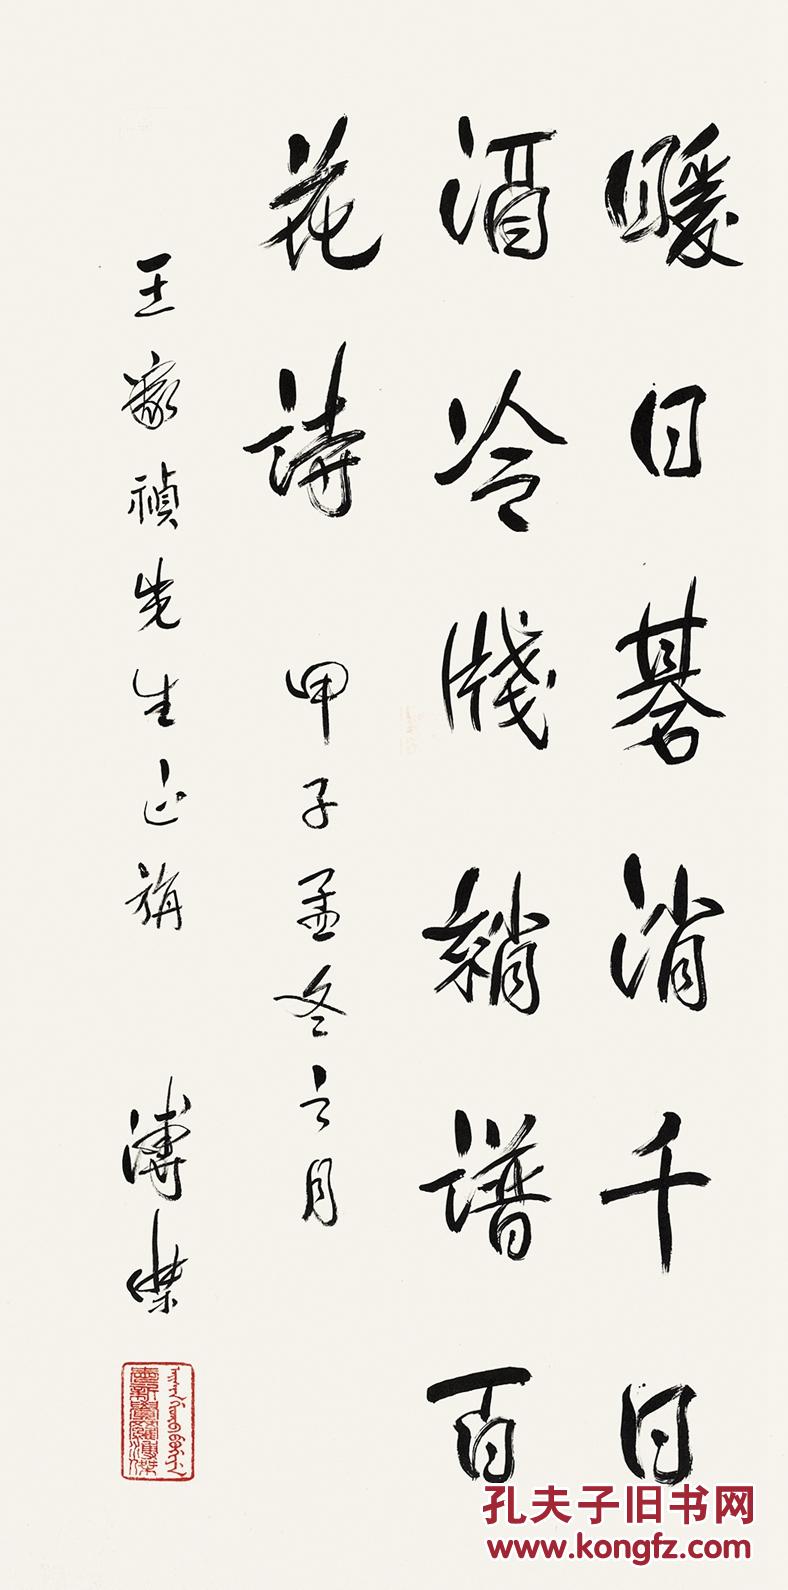 暖日碁消千日
酒冷牋稍譜百
花詩
甲子孟冬之月
王家禎先生正腕
溥傑
愛新覺羅溥傑
孔夫子旧书网
www.kongfz.com